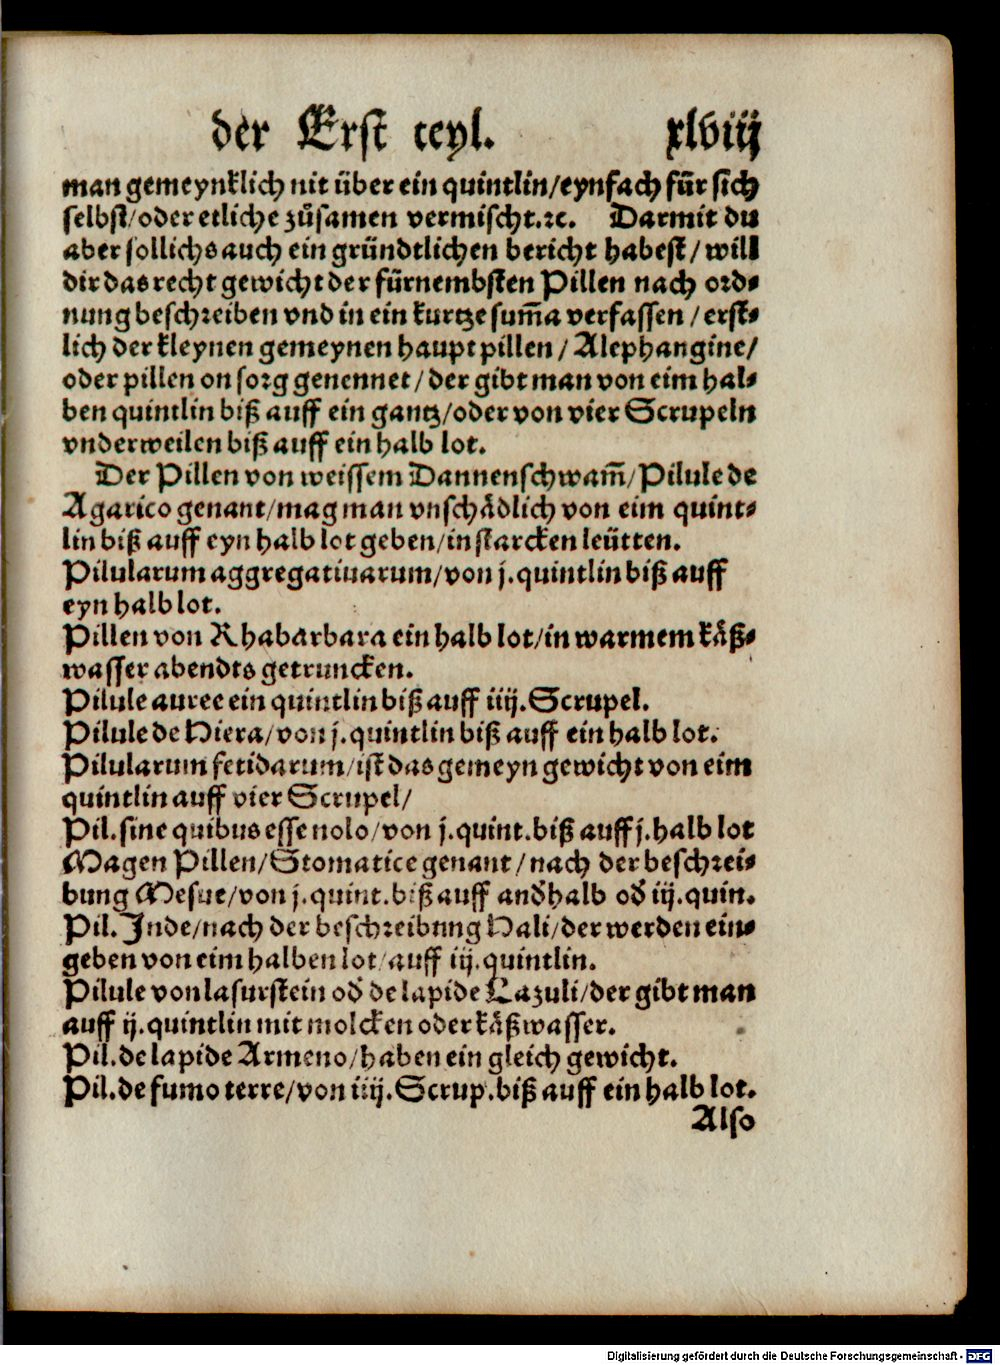 der Erst teyl. xlviij
man gemeynklich nit über ein quintlin/eynfach für sich
selbst/oder etliche zůsamen vermischt.ꝛc. Darmit du
aber sollichs auch ein gründtlichen bericht habest/will
dir das recht gewicht der fürnembsten Pillen nach ord⸗
nung beschreiben vnd in ein kurtze sum̃a verfassen/erst⸗
lich der kleynen gemeynen haupt pillen/Alephangine/
oder pillen on sorg genennet/der gibt man von eim hal⸗
ben quintlin biß auff ein gantz/oder von vier Scrupeln
vnderweilen biß auff ein halb lot.
Der Pillen von weissem Dannenschwam̃/Pilule de
Agarico genant/mag man vnschådlich von eim quint⸗
lin biß auff eyn halb lot geben/in starcken leütten.
Pilularum aggregatiuarum/von j.quintlin biß auff
eyn halb lot.
Pillen von Rhabarbara ein halb lot/in warmem kåß⸗
wasser abendts getruncken.
Pilule auree ein quintlin biß auff iiij.Scrupel.
Pilule de Hiera/von j.quintlin biß auff ein halb lot.
Pilularum fetidarum/ist das gemeyn gewicht von eim
quintlin auff vier Scrupel/
Pil.sine quibus esse nolo/von j.quint.biß auff j.halb lot
Magen Pillen/Stomatice genant/nach der beschrei⸗
bung Mesue/von j.quint.biß auff and̕halb od̕ iij.quin.
Pil. Inde/nach der beschreibung Hali/der werden ein⸗
geben von eim halben lot/auff iij.quintlin.
Pilule von lasurstein od̕ de lapide Lazuli/der gibt man
auff ij.quintlin mit molcken oder kåßwasser.
Pil.de lapide Armeno/haben ein gleich gewicht.
Pil.de fumo terre/von iiij.Scrup.biß auff ein halb lot.
Also
Digitalisierung gefördert durch die Deutsche Forschungsgemeinschaft - DFG